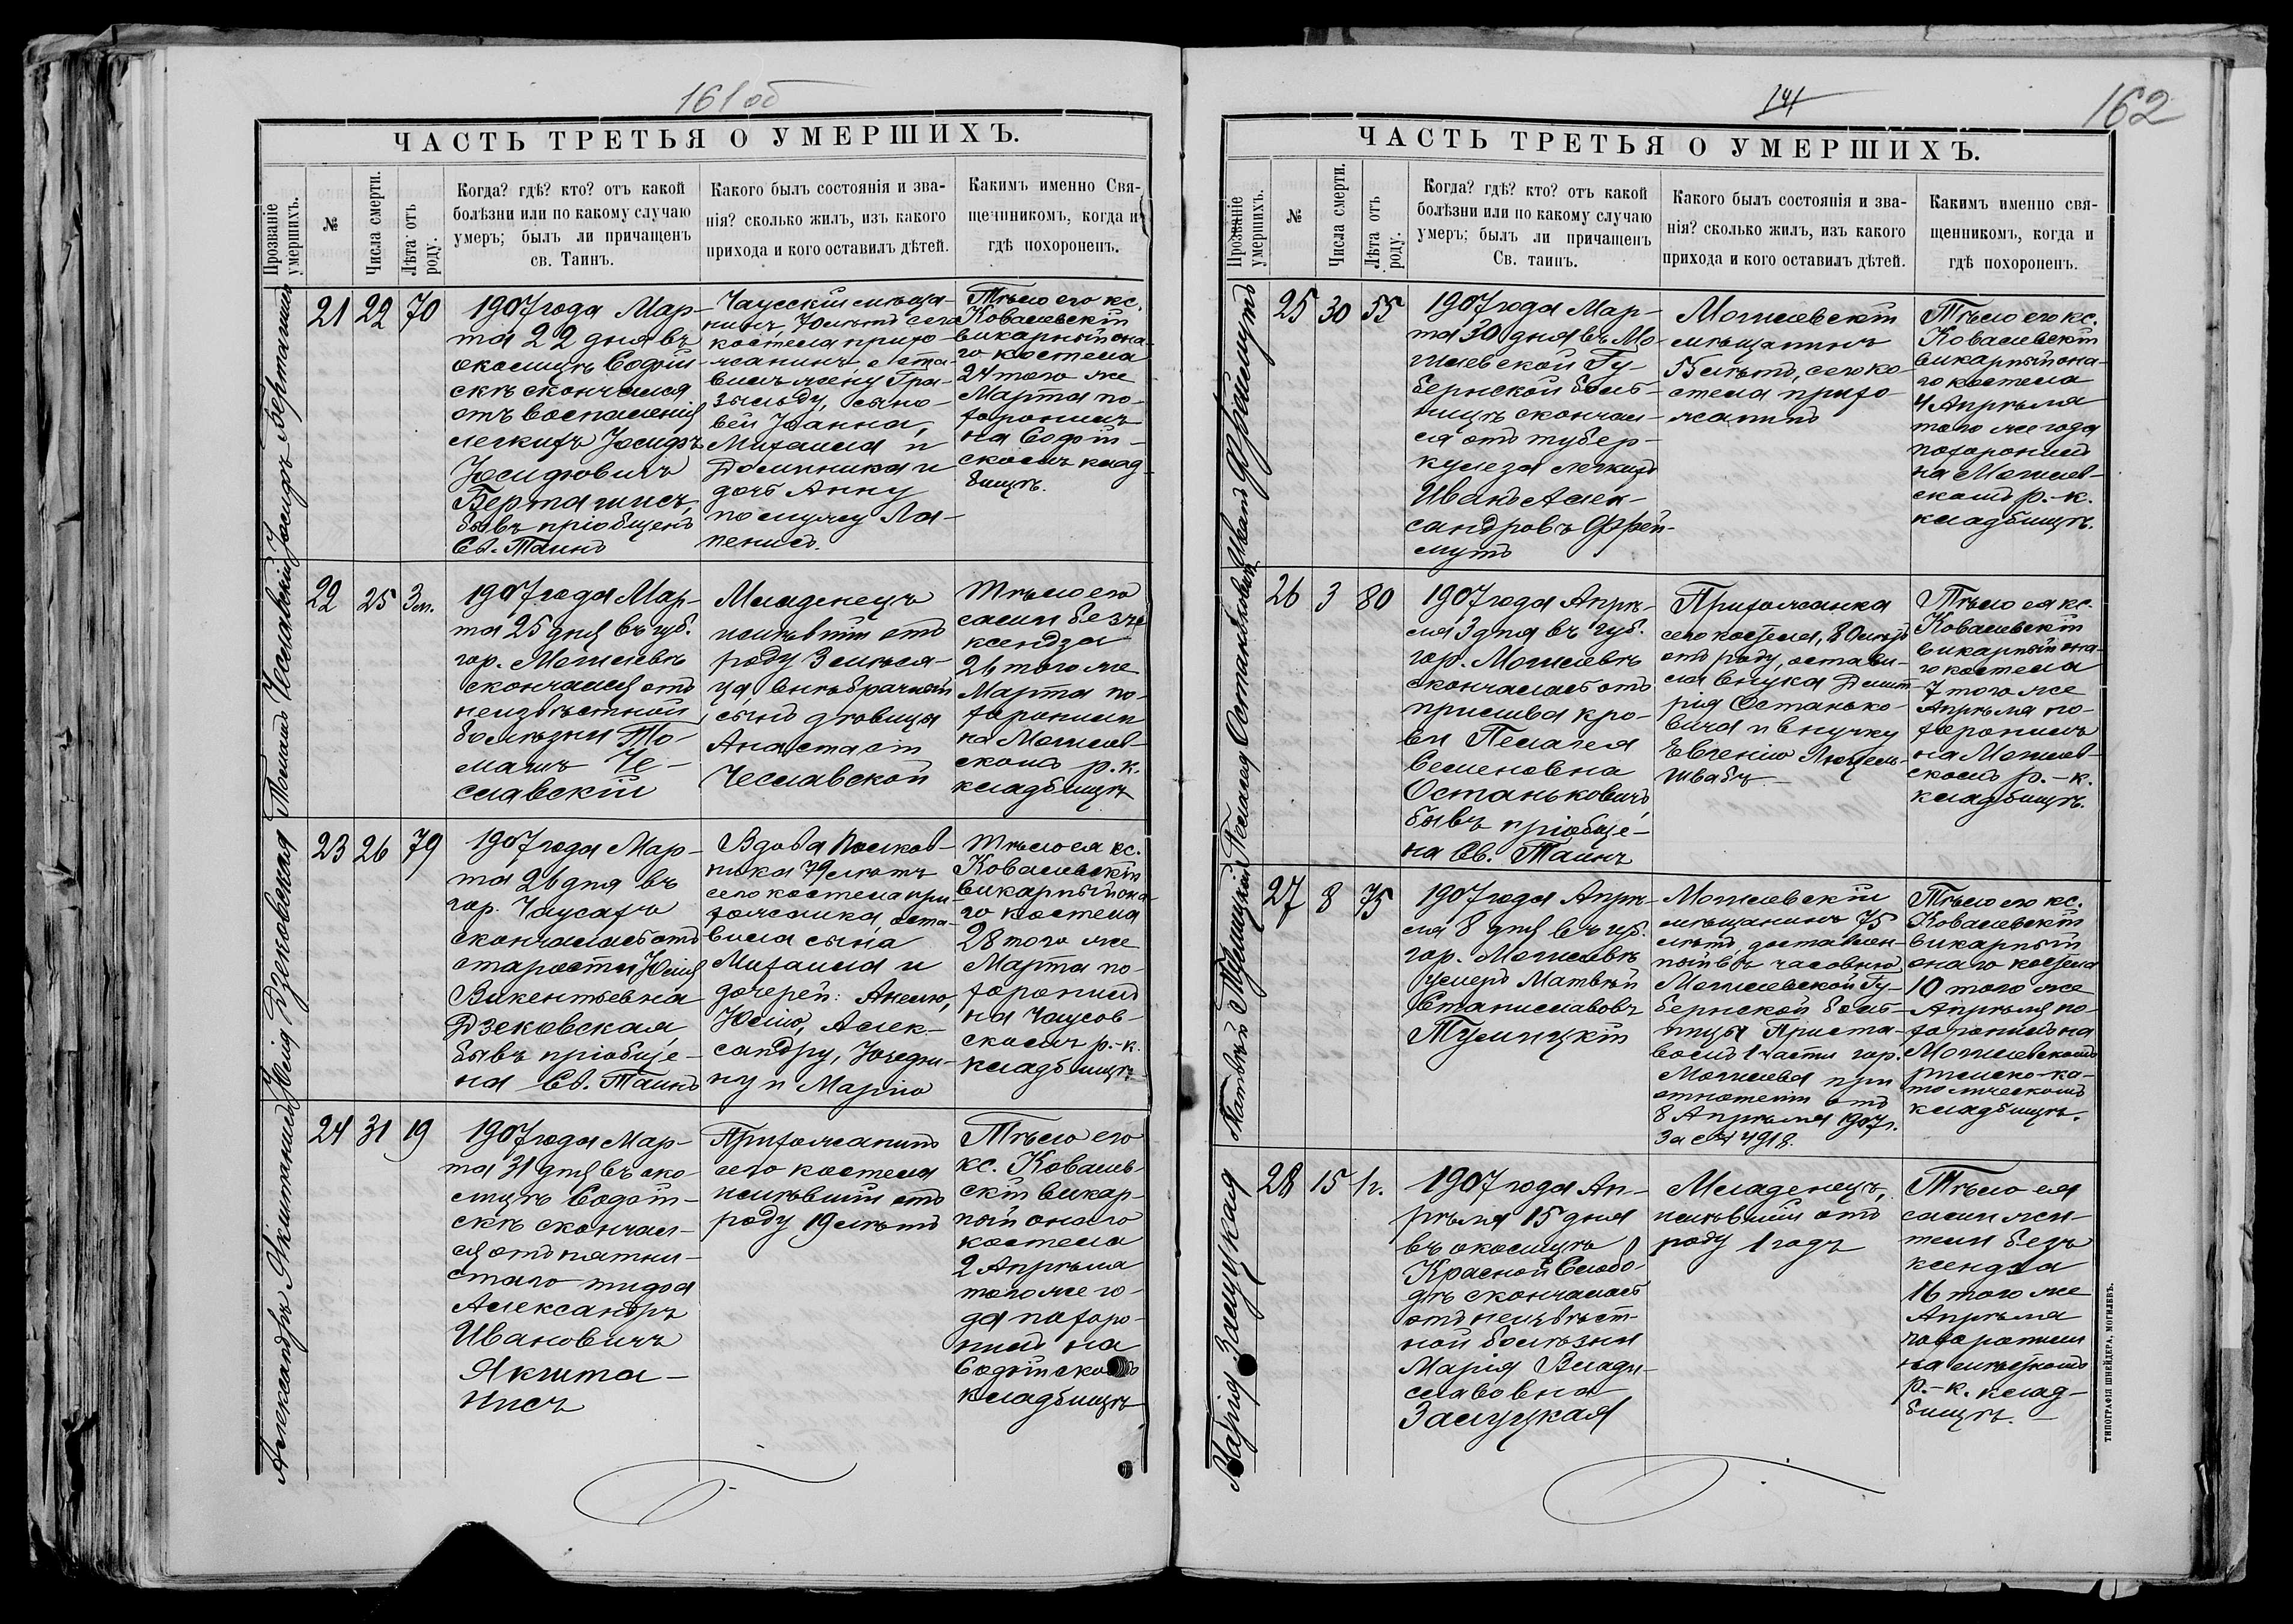 161 об
ЧАСТЬ ТРЕТЬЯ О УМЕРШИХЪ.
Прозваніе умершихъ.
№
Числа смерти.
Лѣта отъ роду.
Когда? гдѣ? кто? отъ какой
болѣзни или по какому случаю
умеръ; былъ ли причащенъ
св. Таинъ.
Какого былъ состоянія и зва-
нія? сколько жилъ, изъ какого
прихода и кого оставилъ дѣтей.
Какимъ именно Свя-
щенникомъ, когда и
гдѣ похороненъ.
Іосифъ Берташисъ
21
22
70
1907 года Мар-
та 22 дня въ
околицѣ Софій-
скѣ скончался
отъ воспаленія
легкихъ Іосифъ
Іосифовичъ
Берташисъ,
бывъ пріобщенъ
Св. Таинъ
Чаусскій мѣща-
нинъ, 70 лѣтъ сего
костела прихо-
жанинъ, оста-
вилъ жену
сыно-
вей Іоанна,
Михаила и
Доминика и
дочь Анну
по мужу Ла-
пенисъ.
Тѣло его кс.
Ковалевскій
викарный она-
го костела
24 того же
Марта по-
хоронилъ
на Софій-
скомъ клад-
бищѣ.
Томашъ Чеславскій
22
25
3 м.
1907 года Мар-
та 25 дня въ губ.
гор. Могилевѣ
скончался отъ
неизвѣстной
болѣзни То-
машъ Че-
славскій
Младенецъ
имѣвшій отъ
роду 3 мѣся-
ца внѣбрачный
сынъ дѣвицы
Анастасіи
Чеславской
Тѣло его
сами безъ
ксендза
26 того же
Марта по-
хоронили
на Могилев-
скомъ р.-к.
кладбищѣ
Юлія Дзековская
23
26
79
1907 года Мар-
та 26 дня въ
гор. Чаусахъ
скончалась отъ
старости Юлія
Викентьевна
Дзековская,
бывъ пріобще-
на Св. Таинъ
Вдова Полков-
ника 79 лѣтъ
сего костела при-
хожанка, оста-
вила сына
Михаила и
дочерей: Анелю,
Юлію, Алек-
сандру, Юзефи-
ну и Марію
Тѣло ея кс.
Ковалевскій
викарный она-
го костела
28 того же
Марта по-
хоронилъ
на Чаусов-
скомъ р.-к.
кладбищѣ
Александръ Якштанисъ
24
31
19
1907 года Мар-
та 31 дня въ око-
лицѣ Софій-
скѣ скончал-
ся отъ пятни-
стаго тифа
Александръ
Ивановичъ
Якшта-
нисъ
Прихожанинъ
сего костела
имѣвшій отъ
роду 19 лѣтъ
Тѣло его
кс. Ковалев-
скій викар-
ный онаго
костела
2 Апрѣля
того же го-
да похоро-
нилъ на
Софійскомъ
кладбищѣ
141
162
ЧАСТЬ ТРЕТЬЯ О УМЕРШИХЪ.
Прозваніе умершихъ.
№
Числа смерти.
Лѣта отъ роду.
Когда? гдѣ? кто? отъ какой
болѣзни или по какому случаю
умеръ; былъ ли причащенъ
Св. таинъ.
Какого былъ состоянія и зва-
нія? сколько жилъ, изъ какого
прихода и кого оставилъ дѣтей.
Какимъ именно свя-
щенникомъ, когда и
гдѣ похороненъ.
Иванъ Фреймутъ
25
30
55
1907 года Мар-
та 30 дня въ Мо-
гилевской Гу-
бернской боль-
ницѣ скончал-
ся отъ тубер-
кулеза легкихъ
Иванъ Алек-
сандровъ Фрей-
мутъ
Могилевскій
мѣщанинъ
55 лѣтъ, сего ко-
стела прихо-
жанинъ
Тѣло его кс.
Ковалевскій
викарный она-
го костела
4 Апрѣля
того же года
похоронилъ
на Могилев-
скомъ р.-к.
кладбищѣ.
Пелагея Останьковичъ
26
3
80
1907 года Апрѣ-
ля 3 дня въ губ.
гор. Могилевѣ
скончалась отъ
прилива кро-
ви Пелагея
Семеновна
Останьковичъ
бывъ пріобще-
на Св. Таинъ
Прихожанка
сего костела, 80 лѣтъ
отъ роду, остави-
ла внука Дмит-
рія Останько-
вича и внучку
Евгенію
Тѣло ея кс.
Ковалевскій
викарный она-
го костела
7 того же
Апрѣля по-
хоронилъ
на Могилев-
скомъ р.-к.
кладбищѣ.
Матвѣй Тулицкій
27
8
75
1907 года Апрѣ-
ля 8 дня въ губ.
гор. Могилевѣ
умеръ Матвѣй
Станиславовъ
Тулицкій
Могилевскій
мѣщанинъ 75
лѣтъ, доставлен-
ный въ часовню
Могилевской Гу-
бернской боль-
ницы Приста-
вомъ 1 части гор.
Могилева при
отношеніи отъ
8 Апрѣля 1907 г.
За № 4918.
Тѣло его кс.
Ковалевскій
викарный
онаго костела
10 того же
Апрѣля по-
хоронилъ на
Могилевскомъ
римско-ка-
толическомъ
кладбищѣ.
Марія Залуцкая
28
15
1 г.
1907 года Ап-
рѣля 15 дня
въ околицѣ
Красной Слобо-
дѣ скончалась
отъ неизвѣст-
ной болѣзни
Марія Влади-
славовна
Залуцкая
Младенецъ,
имѣвшій отъ
роду 1 годъ
Тѣло ея
сами жи-
тели безъ
ксендза
16 того же
Апрѣля
похоронили
на мѣстномъ
р.-к. клад-
бищѣ.
ТИПОГРАФІЯ ШНЕЙДЕРА, МОГИЛЕВЪ.